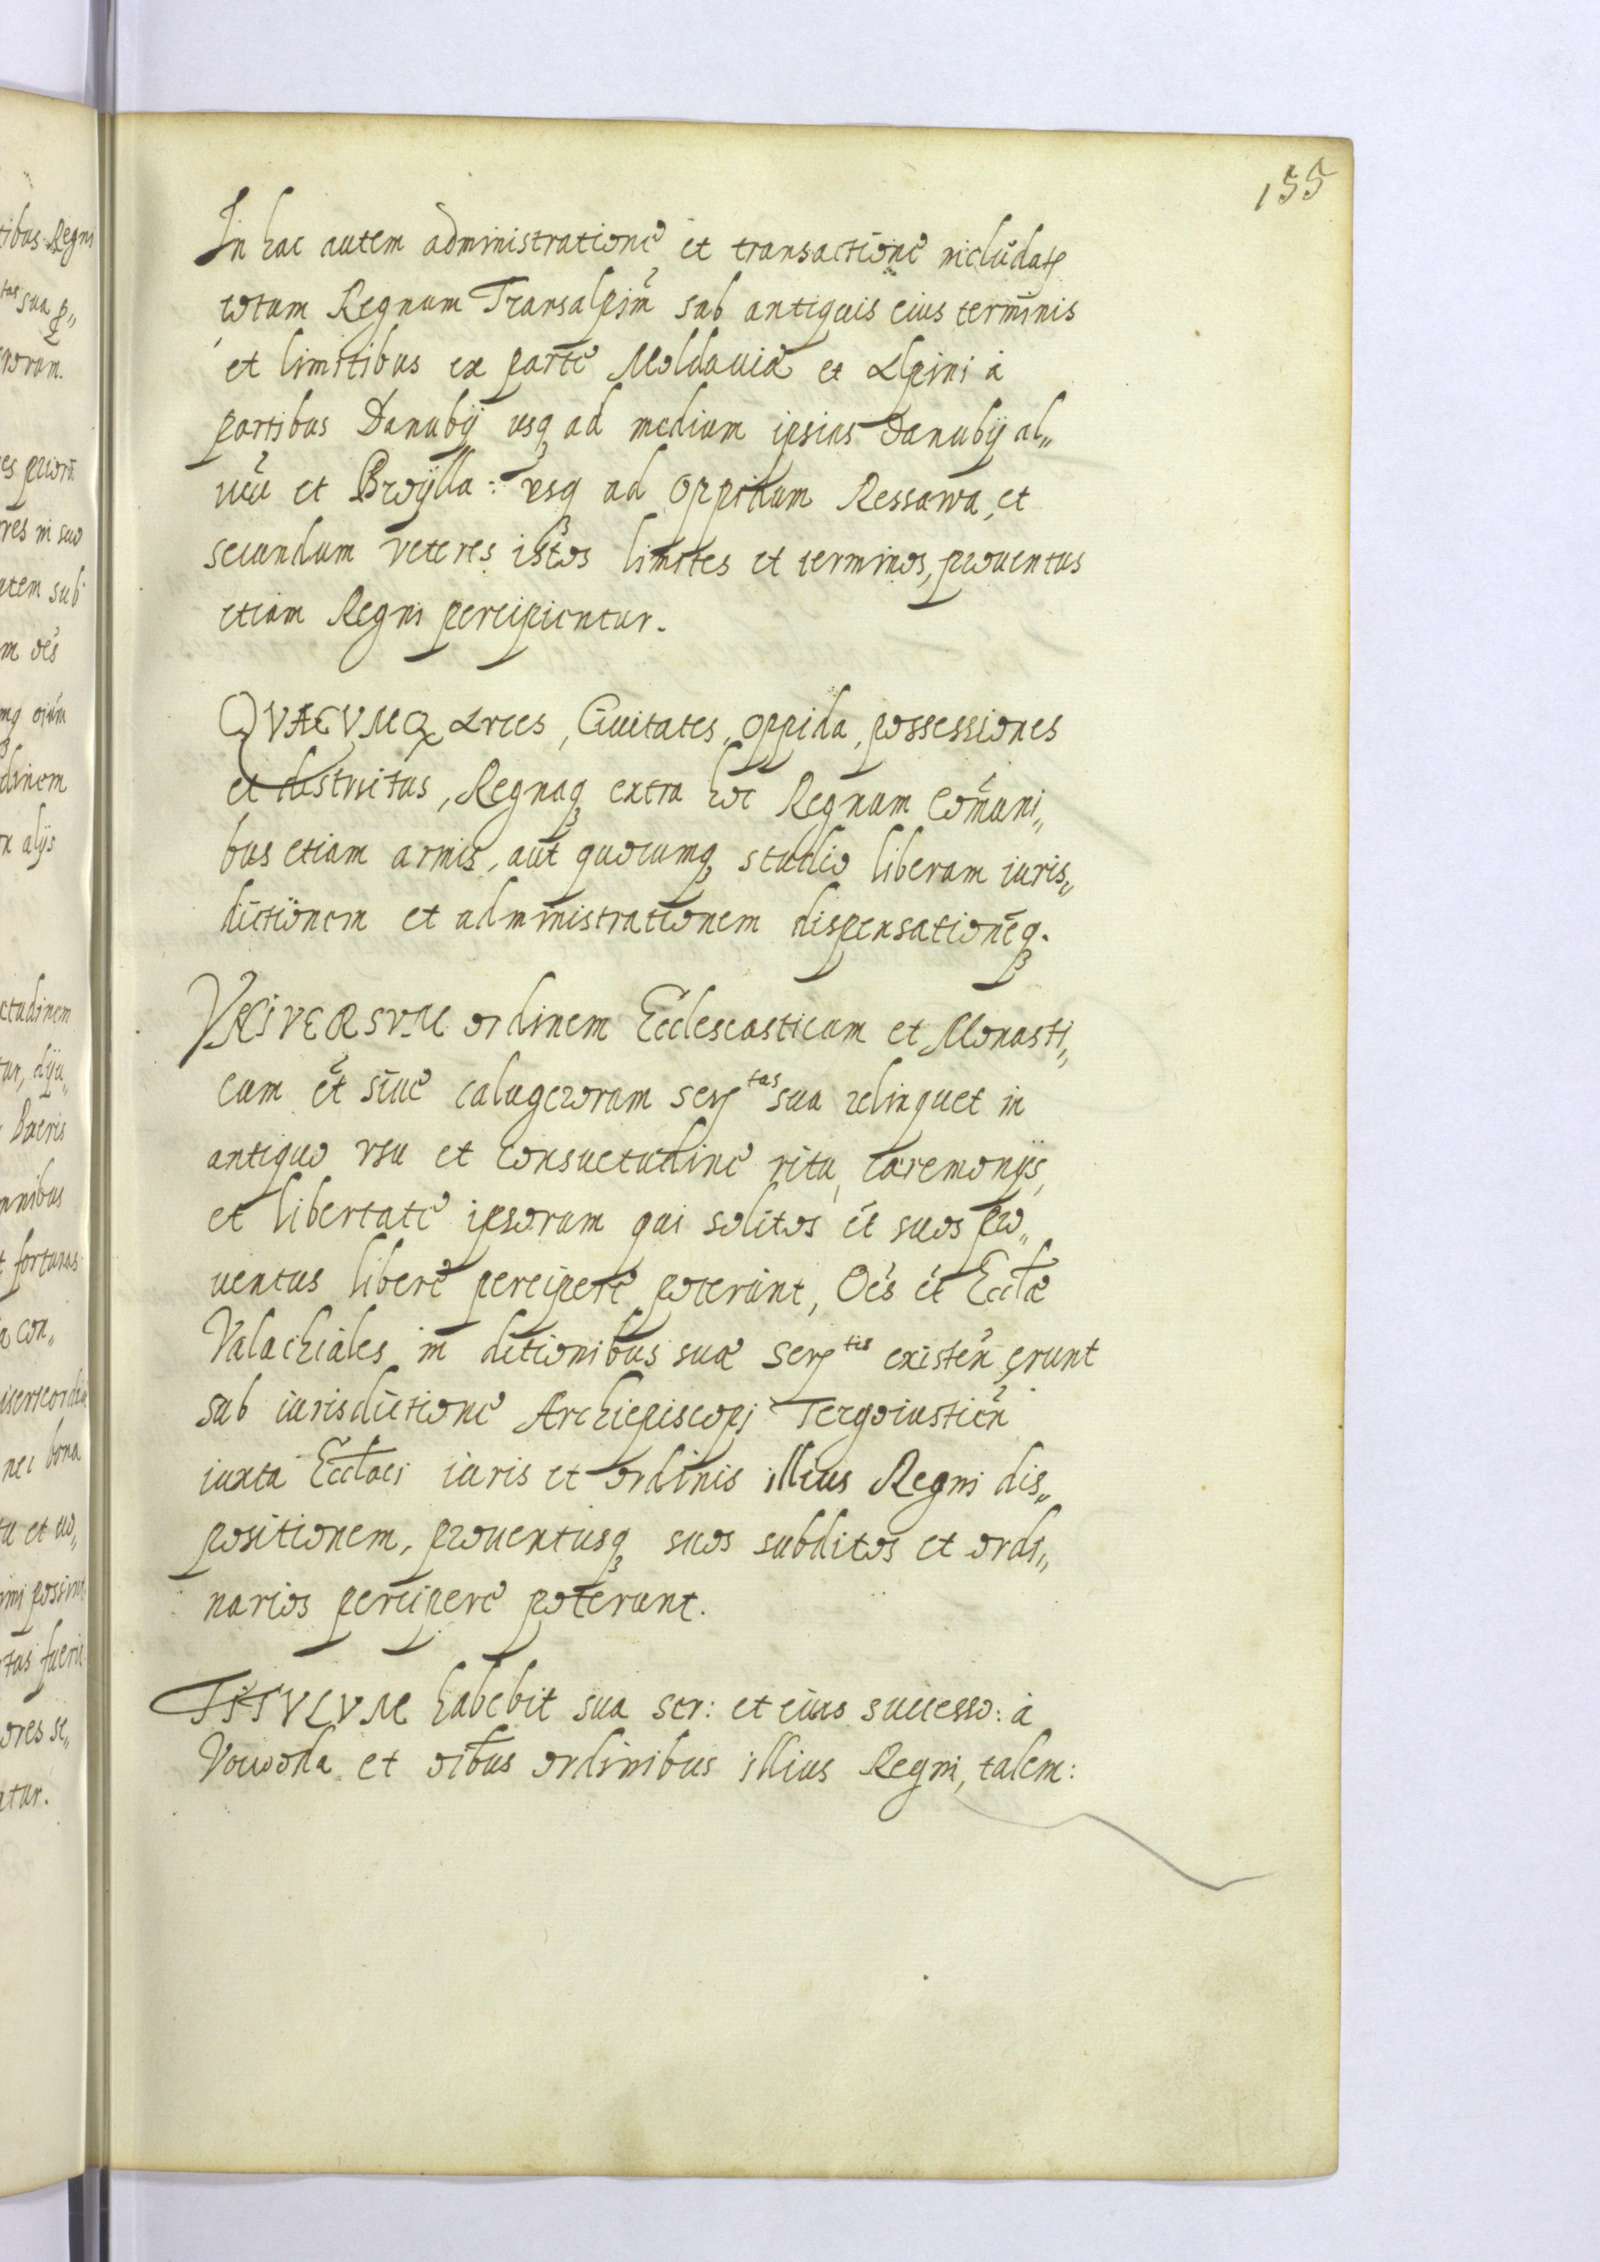 155
In hac autem administratione et transactione includatʳ
totam Regnum Transalpinū sub antiquis eius terminis
et limitibus ex parte Moldauiæ et Alpini à
partibus Danubij usq ad medium ipsius Danubij al„
ueū et Broÿlla: vsq ad oppidum Ressawa, et
secundum veteres istos limites et terminos, prouentus
etiam Regni percipientur.
QVAECVMQ Arces, Ciuitates, oppida, possessiones
et destrictus, Regnaq extra hoc Regnum Com̄uni„
bus etiam armis, aut quocumq studio liberam iuris„
dictionem et administrationem dispensationēq.
VNIVERSVM ordinem Ecclesiasticum et Monasti„
cum et siue calugerorum Serᵗᵃˢ sua relinquet in
antiquo vsu et consuetudine ritu, cæremonijs,
et libertate ipsorum qui solitos et suos pro„
uentus libere percipere poterunt, Oēs et Eccłæ
Valachiales in ditionibus suæ Serᵗⁱˢ existeñ erunt
sub iurisdictione Archiepiscopi Tergouisticeñ
iuxta Eccłaci iuris et ordinis illius Regni dis„
positionem, prouentusq suos subditos et ordi„
narios percipere poterunt.
TITVLVM habebit sua Ser: et eius successo: à
Voiuoda et oībus ordinibus illius Regni, talem:
tibus Regni
tas sua
uorum.
res in suo
utem sub
m oēs
dinem
alijs
tudinem
nnibus
t fortunas
a con„
nec bona
tas fueri
ores se„
tur.